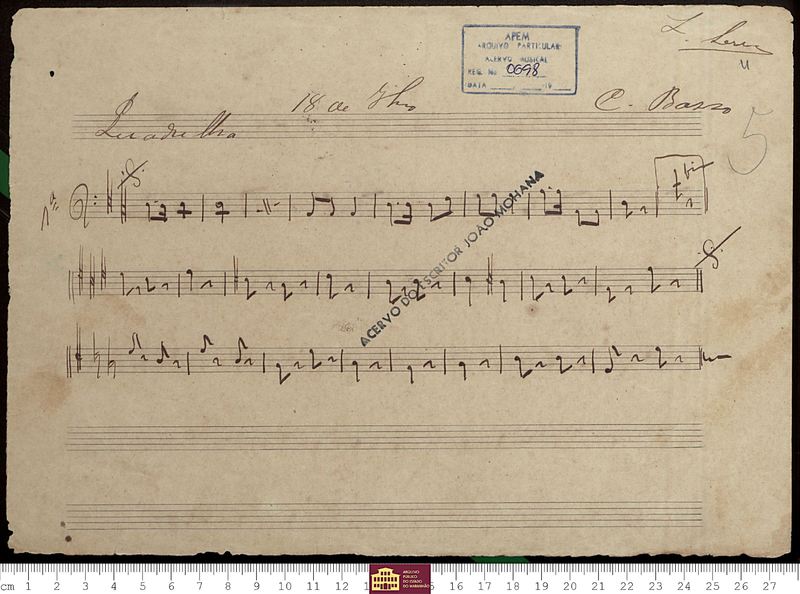 APEM
ARQUIVO PARTICULAR
ACERVO MUSICAL
REG. No 0698
DATA ____/____/19____
5
Quadrilha 18 de Jlho C. Basso
Nº 1
ACERVO DO ESCRITOR JOÃO MOHANA
fim
cm 1 2 3 4 5 6 7 8 9 10 11 12 13 15 16 17 18 19 20 21 22 23 24 25 26 27
ARQUIVO
PÚBLICO
DO ESTADO
DO MARANHÃO